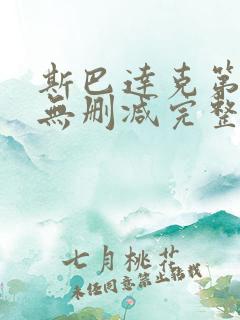 斯巴達克第
無刪减完整
七月桃花
未经同意禁止转载